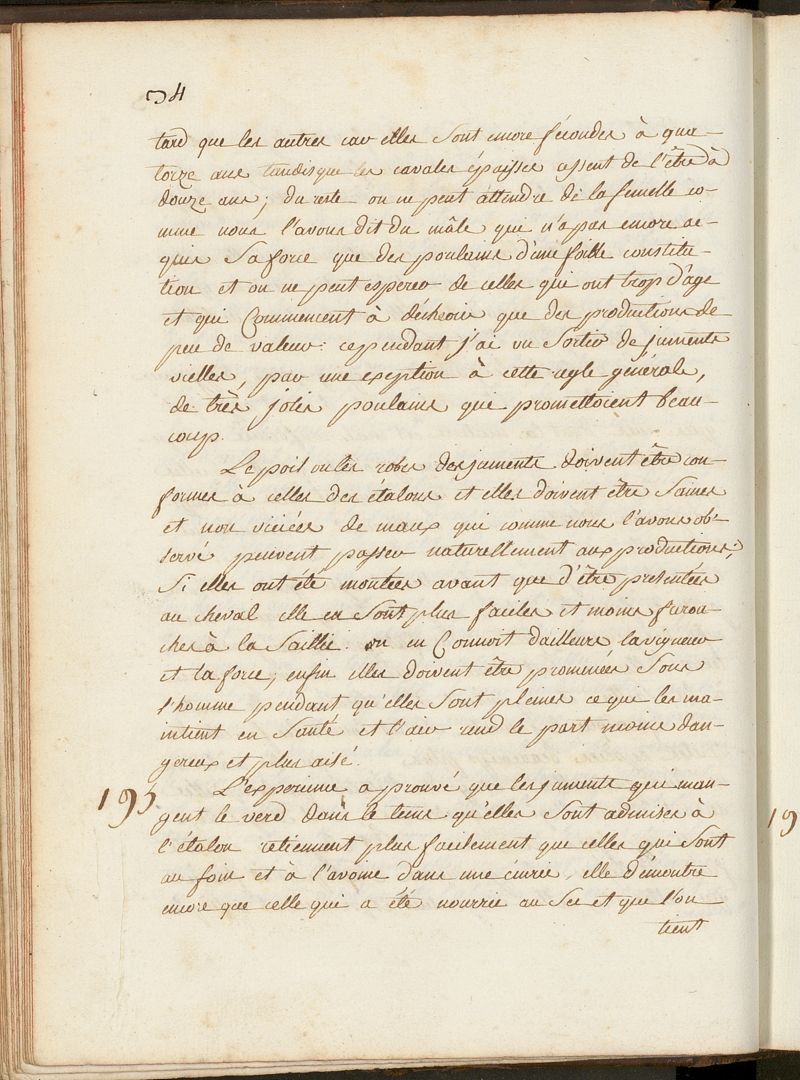 34
tard que les autres car elles sont encore fécondes à qua-
torze ans tandisque les cavales épaisses cessent de l'être à
douze ans; du reste on ne peut attendre de la femelle co-
mme nous l'avons dit du mâle qui n'a pas encore ac-
quis sa force que des poulains d'une foible constitu-
tion et on ne peut esperer de celles qui ont trop d'age
et qui Commencent à décheoir que des productions de
peu de valeur: cependant j'ai vu Sortir de juments
vielles, par une exeption à cette regle générale,
de très jolis poulains qui promettoient beau-
coup.
Le poil ou les robes des juments doivent être con-
formes à celles des étalons et elles doivent être Saines
et non viciées de maux qui comme nous l'avons ob-
servé peuvent passer naturellement aux productions;
Si elles ont été montées avant que d'être presentées
au cheval elle en Sont plus faciles et moins farou-
ches à la Saillie. on en Connoit d'ailleurs la vigueur
et la force; enfin elles doivent être promenées Sous
l'homme pendant qu'elles Sont pleines ce qui les ma-
intient en Santé et l'air rend le part moins dan-
gereux et plus aisé.
195 L'experience a prouvé que les juments qui man-
gent le verd dans le tems qu'elles Sont admises à
l'étalon retiennent plus facilement que celles qui Sont
au foin et à l'avoine dans une écurie, elle démontre
encore que celle qui a été nourrie au Sec et que l'on
tient
19